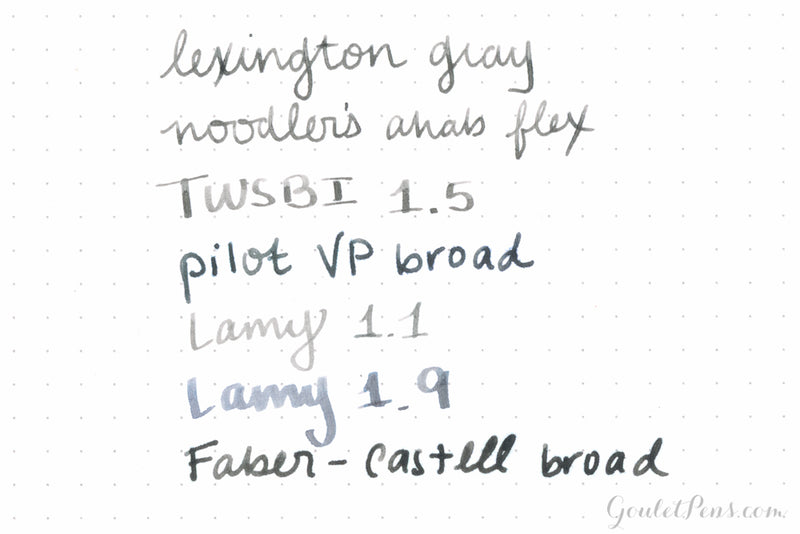 lexington gray
noodler's ahab flex
TWSBI 1.5
pilot VP broad
Lamy 1.1
Lamy 1.9
Faber-Castell broad
GouletPens.com